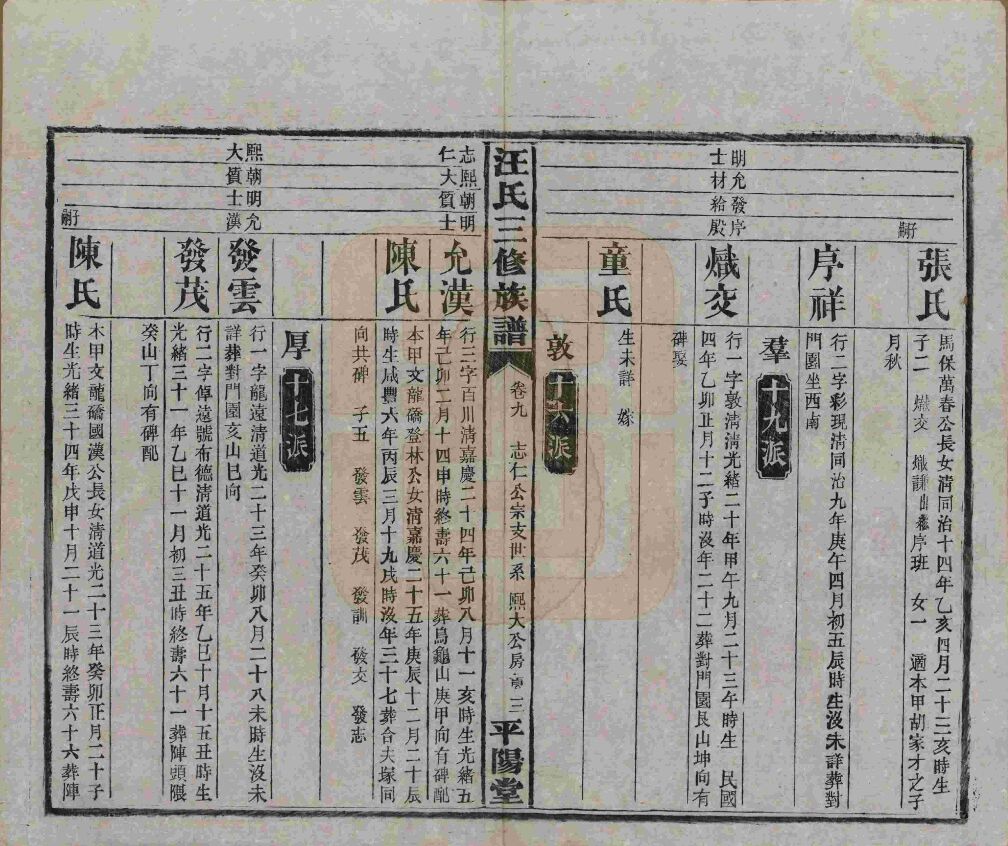 張氏
馬保萬春公長女清同治十四年乙亥四月二十三亥時生
子二 熾交 序班 女一 適本甲胡家才之子
月秋
序祥
行二字彩現清同治九年庚午四月初五辰時生沒未詳葬對
門園坐西南
羣 十九派
明允發序
士材給殿
熾交
行一字敦清清光緒二十年甲午九月二十三年時生 民國
四年乙卯正月十二子時沒年二十二葬對門園艮山坤向有
碑娶
童氏
生未詳 嫁
敦
汪氏三修族譜 卷九 志仁公宗支世系 熙大公房 三 平陽堂
志熙朝明
仁大質士
允漢
行三字百川清嘉慶二十四年己卯八月十一亥時生光緒五
年己卯二月十四申時終壽六十一葬烏龜山庚甲向有碑配
陳氏
本甲文龍礄登林公女清嘉慶二十五年庚辰十二月二十辰
時生咸豐六年丙辰三月十九戌時沒年三十七葬合夫塚同
向共碑 子五 發雲 發茂 發訓 發交 發志
厚 十七派
熙朝明允
大質士漢
發雲
行一字龍遠清道光二十三年癸卯八月二十八未時生沒未
詳葬對門園亥山巳向
發茂
行二字倬遠號布德清道光二十五年乙巳十月十五丑時生
光緒三十一年乙巳十一月初三丑時終壽六十一葬陣頭隈
癸山丁向有碑配
陳氏
本甲文龍礄國漢公長女清道光二十三年癸卯正月二十子
時生光緒三十四年戊申十月二十一辰時終壽六十六葬陣